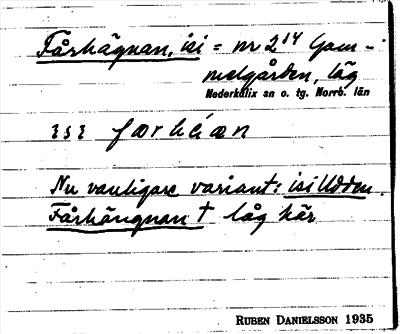 Fårhägnan, isi = nr 2¹⁴ Gam-
melgården, läg
Nederkalix sn o. tg. Norrb. län
Nu vanligare variant: isi Udden.
Fårhängnan † låg här
RUBEN DANIELSSON 1935